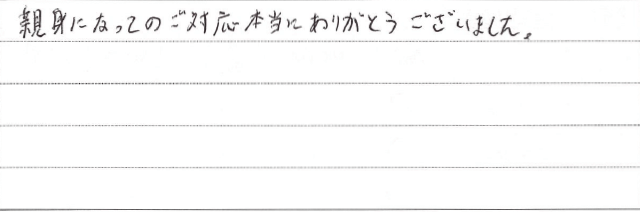 親身になってのご対応本当にありがとうございました。